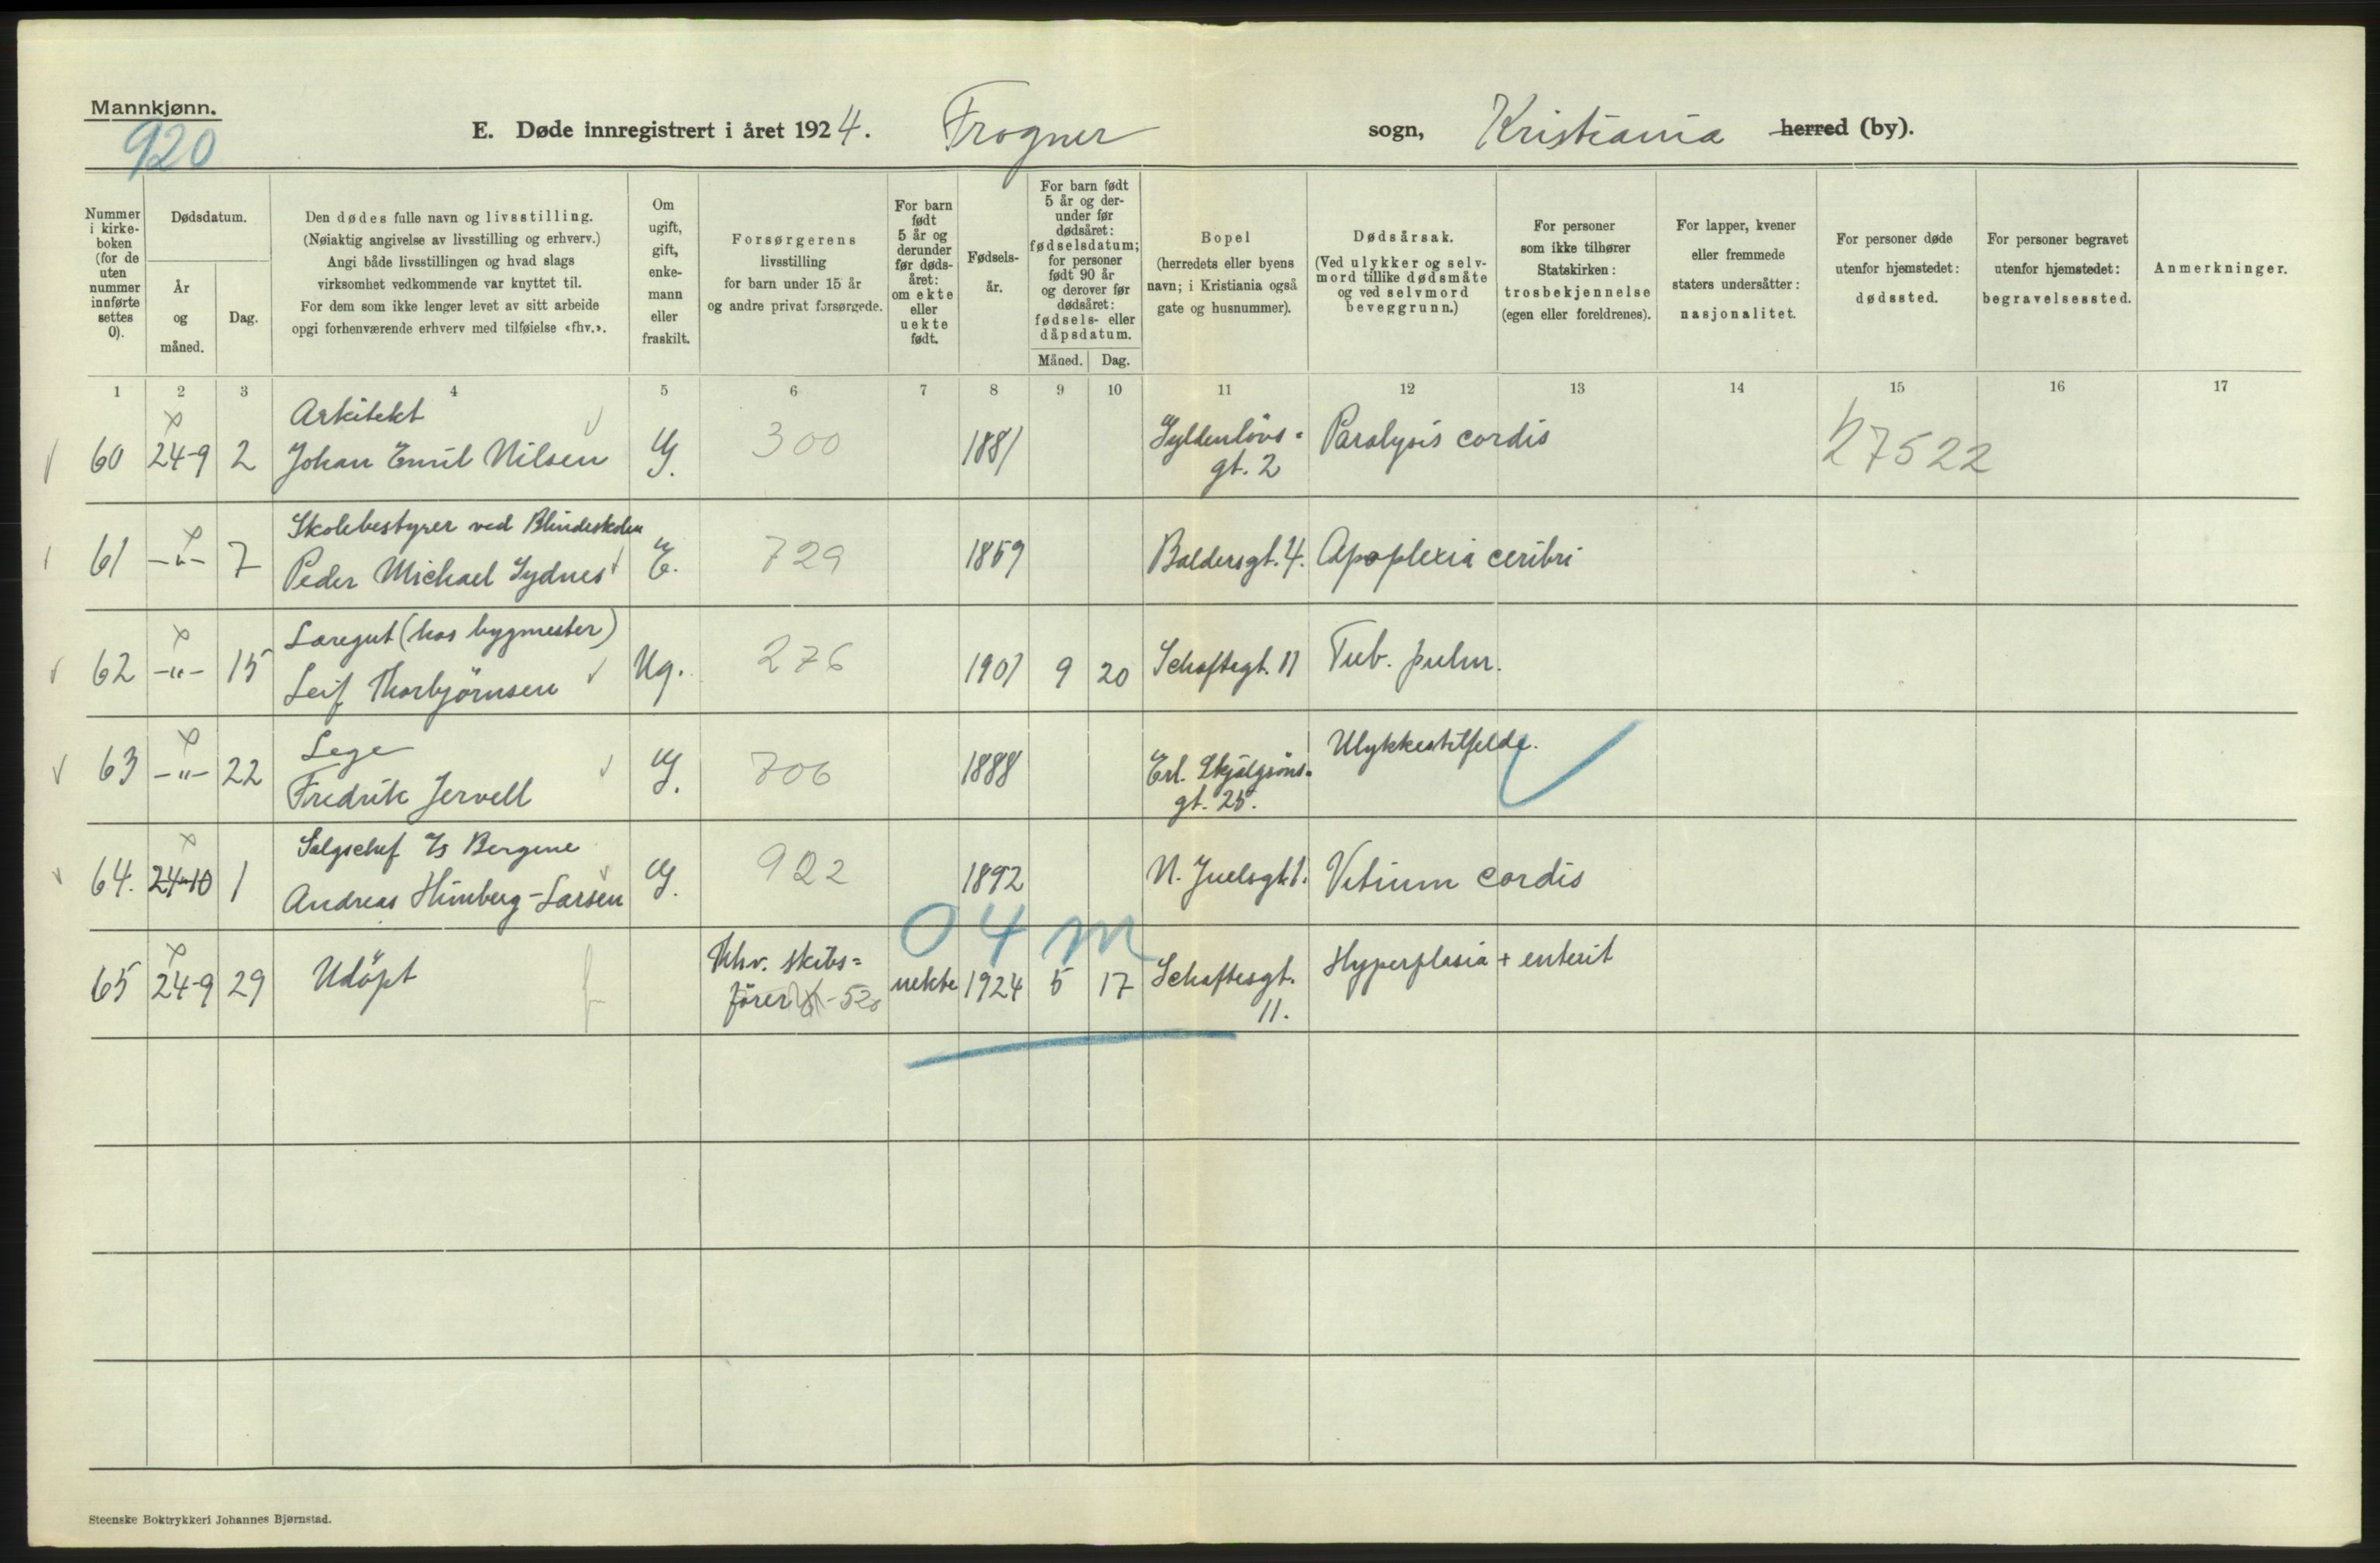 Mannkjønn.
920
E. Døde innregistrert i året 1924. Frogner sogn, Kristiania herred (by).
Nummer i kirkeboken (for de uten nummer innførte settes 0).
Dødsdatum.
År og måned.
Dag.
Den dødes fulle navn og livsstilling.
(Nøiaktig angivelse av livsstilling og erhverv.)
Angi både livsstillingen og hvad slags
virksomhet vedkommende var knyttet til.
For dem som ikke lenger levet av sitt arbeide
opgi forhenværende erhverv med tilføielse «fhv.».
Om ugift, gift, enkemann eller fraskilt.
Forsørgerens
livsstilling
for barn under 15 år
og andre privat forsørgede.
For barn født 5 år og derunder før dødsåret: om ekte eller uekte født.
Fødselsår.
For barn født 5 år og derunder før dødsåret: fødselsdatum; for personer født 90 år og derover før dødsåret: fødsels- eller dåpsdatum.
Måned. Dag.
Bopel
(herredets eller byens
navn; i Kristiania også
gate og husnummer).
Dødsårsak.
(Ved ulykker og selv-
mord tillike dødsmåte
og ved selvmord
beveggrunn.)
For personer
som ikke tilhører
Statskirken:
trosbekjennelse
(egen eller foreldrenes).
For lapper, kvener
eller fremmede
staters undersåtter:
nasjonalitet.
For personer døde
utenfor hjemstedet:
dødssted.
For personer begravet
utenfor hjemstedet:
begravelsessted.
Anmerkninger.
1 2 3 4 5 6 7 8 9 10 11 12 13 14 15 16 17
Arkitekt
60 24-9 2 Johan Emil Nilsen G. 300 1881 Gyldenløvs= gt. 2 Paralysis cordis 27522
Skolebestyrer ved Blindeskolen
61 -"- 7 Peder Michael Sydnes E. 729 1859 Baldersgt. 4. Apoplexia ceribri
Læregut (hos bygmester)
62 -"- 15 Leif Thorbjörnsen Ug. 276 1907 9 20 Schaftesgt. 11 Tub. pulm.
Lege
63 -"- 22 Fredrik Jervell G. 706 1888 Erl. Skjalgsöns= gt. 25. Ulykkestilfelde.
Salgschef Bergene
64. 24-10 1 Andreas Himberg-Larsen G. 922 1892 N. Juelsgt. 1. Vitium cordis
04 m
65 24-9 29 Udöpt fhv. skibs= förer - 520 uekte 1924 5 17 Schaftesgt. 11. Hyperplasia + enterit
Steenske Boktrykkeri Johannes Bjørnstad.